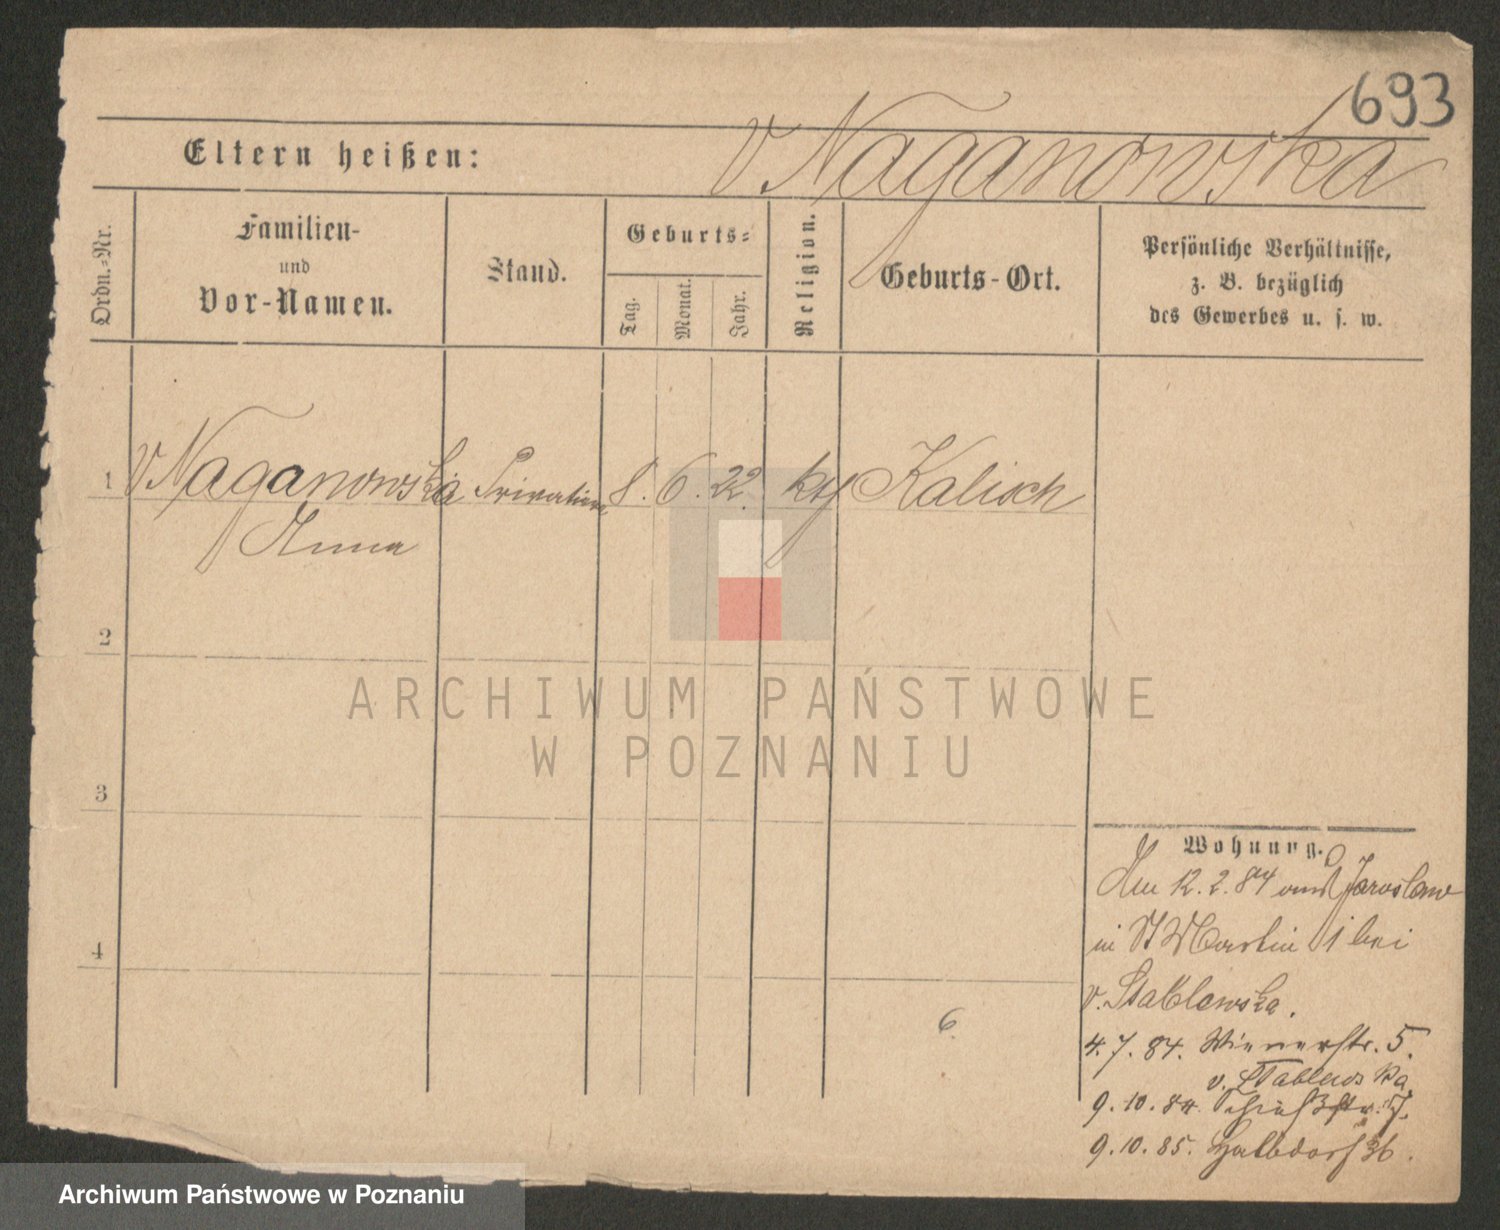 693
v Naganowska
Eltern heißen:
Ordn.-Nr.
Familien-
und
Vor-Namen.
Stand.
Geburts-
Tag.
Monat.
Jahr.
Religion.
Geburts-Ort.
Persönliche Verhältnisse,
z. B. bezüglich
des Gewerbes u. s. w.
1 v Naganowska 8. 6. 22. kth Kalisch
Anna
2
ARCHIWUM PAŃSTWOWE
W POZNANIU
3
Wohnung.
12. 2. 84 Jaroslaw
in St Martin 1 bei
4
v. Stablewska.
6
4. 7. 84. Wienerstr. 5.
v. Stablewska
9. 10. 84. Schießstr. 7.
9. 10. 85. Halbdorf 36.
Archiwum Państwowe w Poznaniu